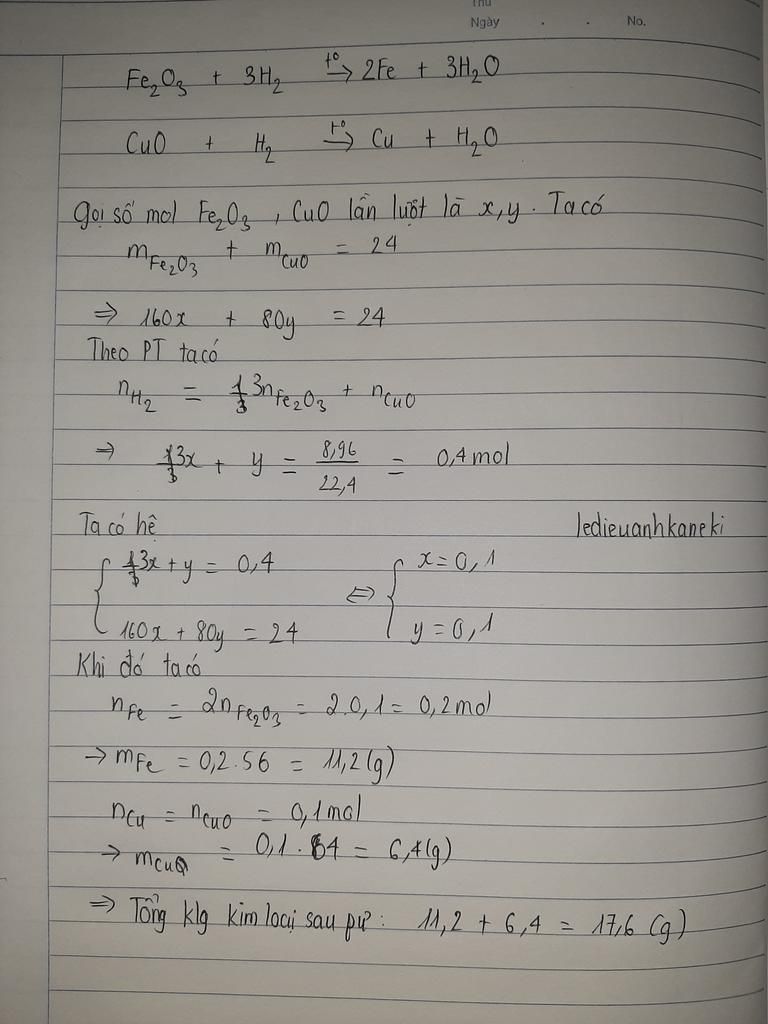 Thu
Ngày . . No.
Fe₂O₃ + 3H₂ →(t°) 2Fe + 3H₂O
CuO + H₂ →(t°) Cu + H₂O
Gọi số mol Fe₂O₃ , CuO lần lượt là x,y. Ta có
m_Fe₂O₃ + m_CuO = 24
⇒ 160x + 80y = 24
Theo PT ta có
n_H₂ = 3n_Fe₂O₃ + n_CuO
⇒ 3x + y = 8,96/22,4 = 0,4 mol
Ta có hệ ledieuanhkaneki
{ 3x + y = 0,4 ⇔ { x = 0,1
160x + 80y = 24 y = 0,1
Khi đó ta có
n_Fe = 2n_Fe₂O₃ = 2.0,1 = 0,2 mol
→ m_Fe = 0,2.56 = 11,2 (g)
n_Cu = n_CuO = 0,1 mol
→ m_Cu = 0,1.64 = 6,4 (g)
⇒ Tổng klg kim loại sau pư: 11,2 + 6,4 = 17,6 (g)